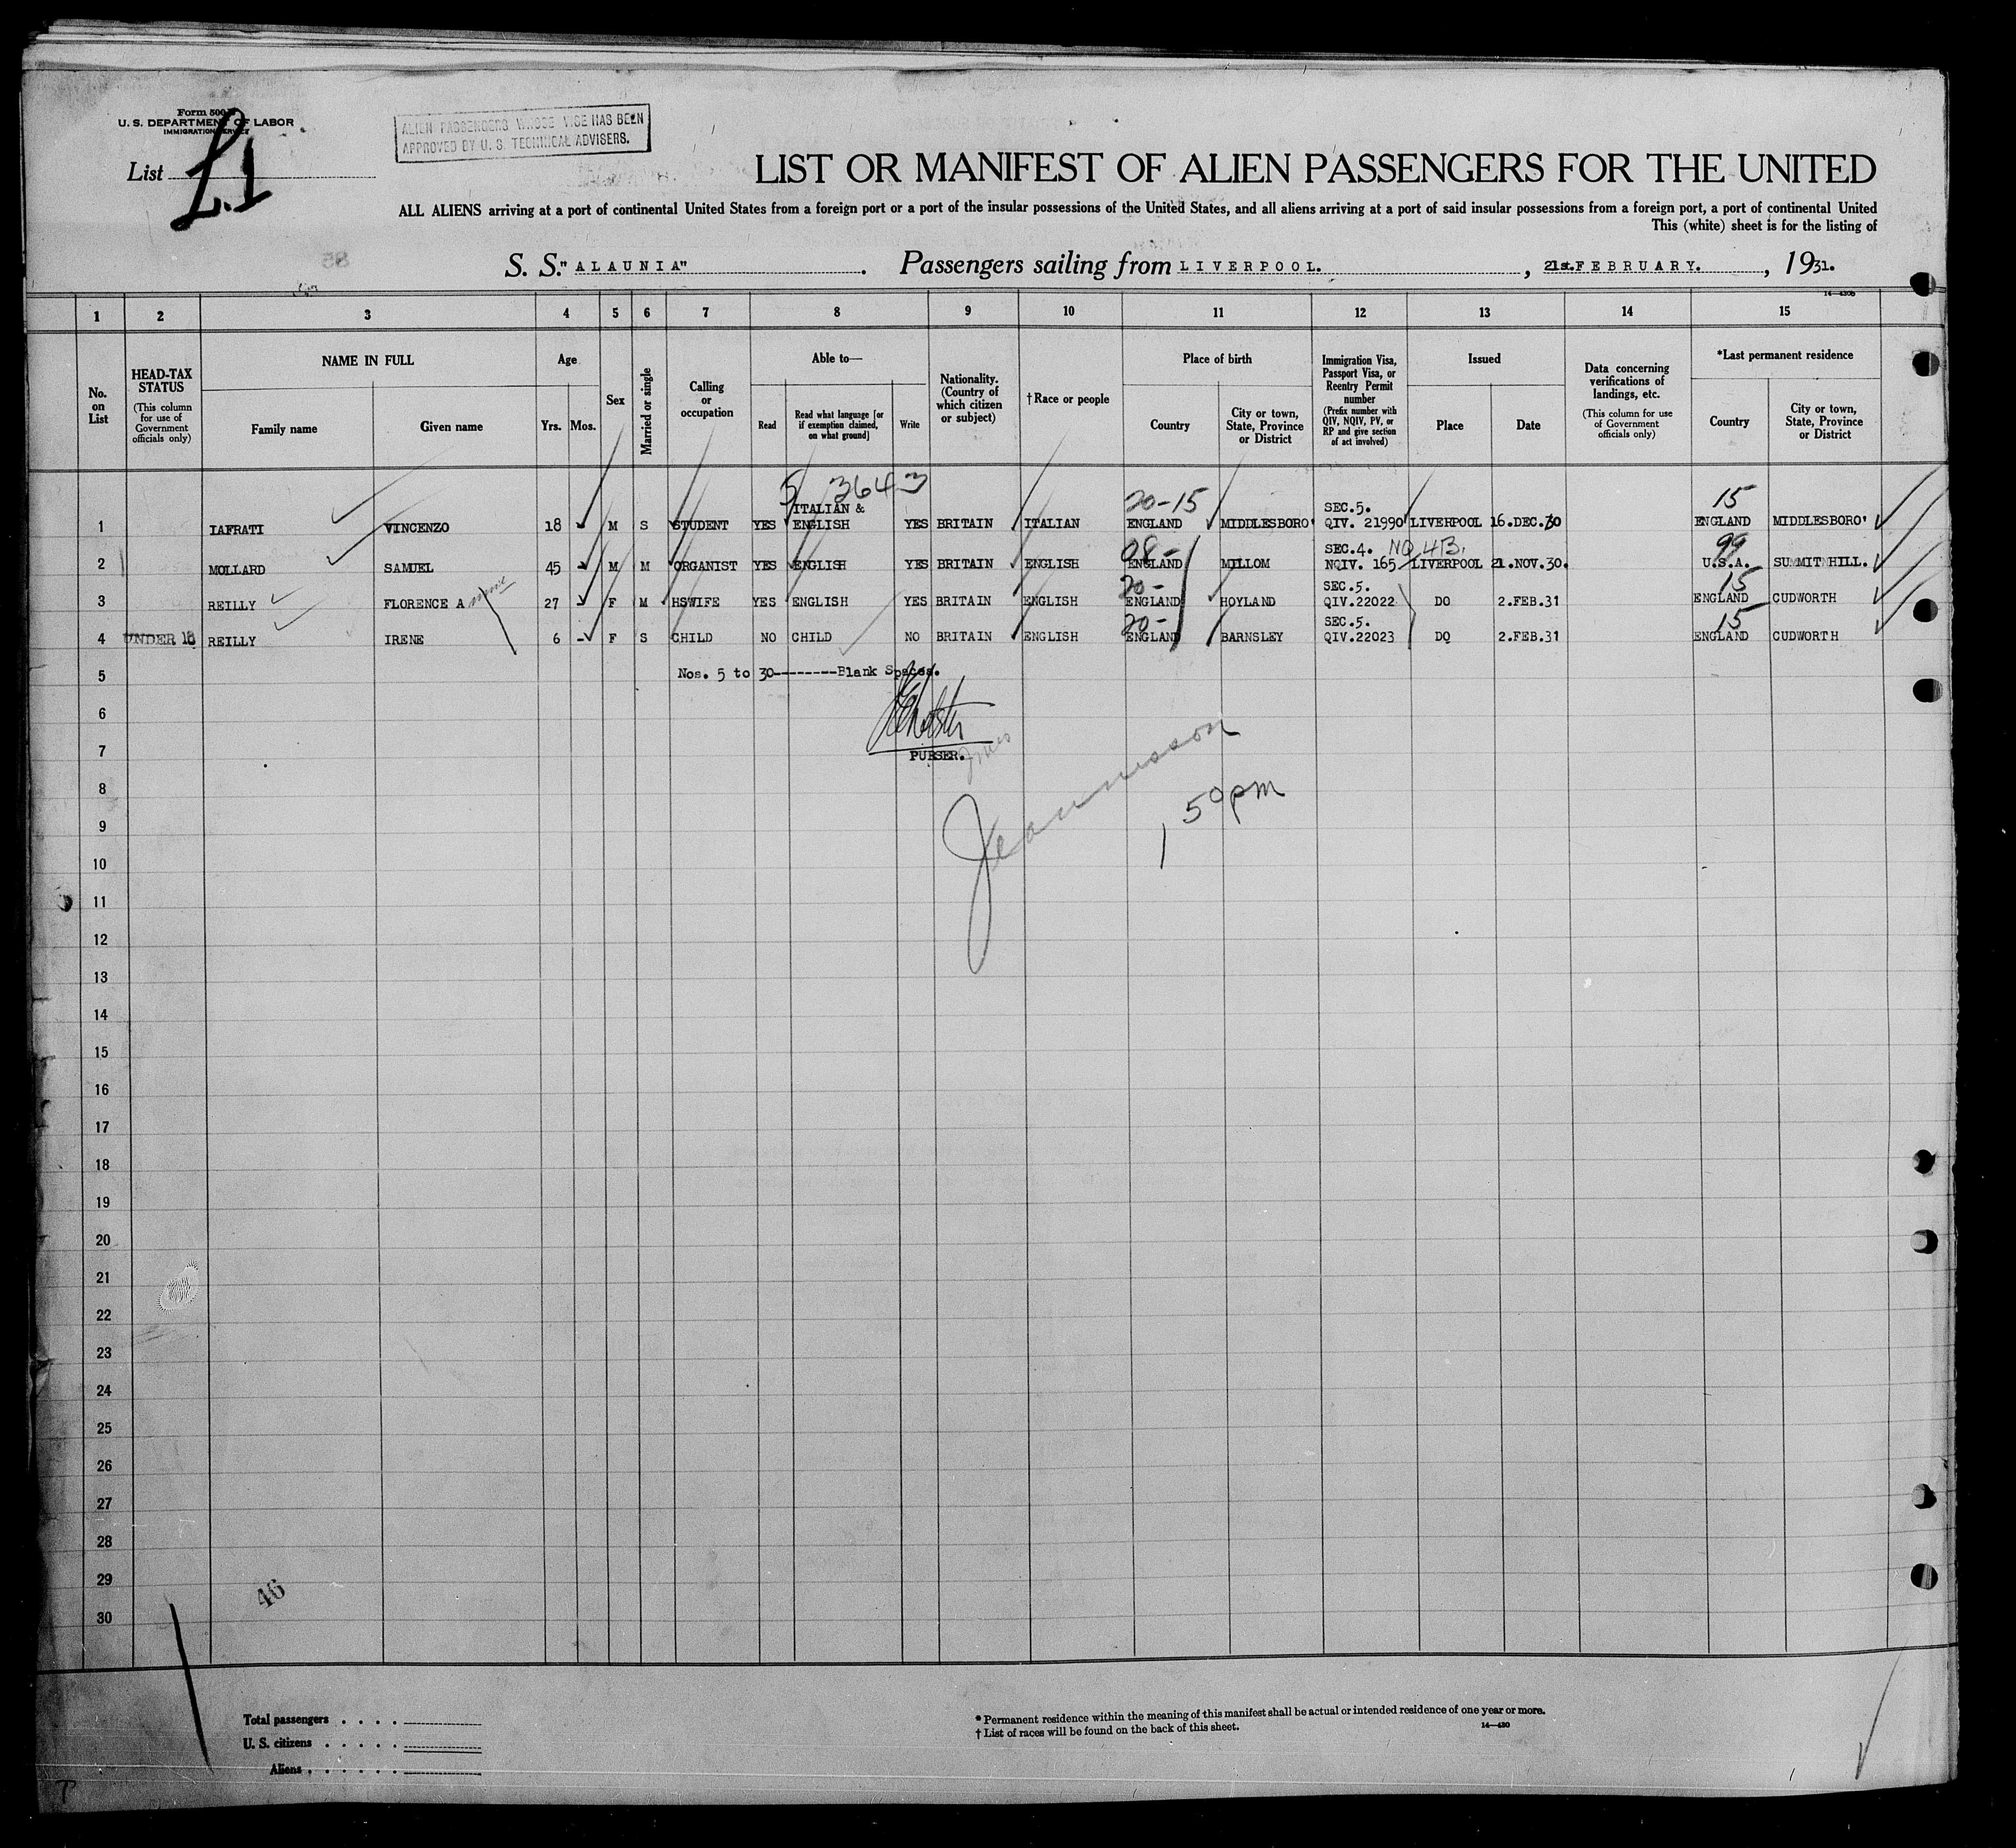 Form 500
U. S. DEPARTMENT OF LABOR
IMMIGRATION SERVICE
List L1
ALIEN PASSENGERS WHOSE VISE HAS BEEN
APPROVED BY U. S. TECHNICAL ADVISERS.
LIST OR MANIFEST OF ALIEN PASSENGERS FOR THE UNITED
ALL ALIENS arriving at a port of continental United States from a foreign port or a port of the insular possessions of the United States, and all aliens arriving at a port of said insular possessions from a foreign port, a port of continental United
This (white) sheet is for the listing of
S. S. "ALAUNIA" . Passengers sailing from LIVERPOOL. , 21st. FEBRUARY. , 1931.
14—430b
1 2 3 4 5 6 7 8 9 10 11 12 13 14 15
No. on List
HEAD-TAX STATUS (This column for use of Government officials only)
NAME IN FULL
Family name Given name
Age
Yrs. Mos.
Sex
Married or single
Calling or occupation
Able to—
Read Read what language [or if exemption claimed, on what ground] Write
Nationality. (Country of which citizen or subject)
†Race or people
Place of birth
Country City or town, State, Province or District
Immigration Visa, Passport Visa, or Reentry Permit number (Prefix number with QIV, NQIV, PV, or RP and give section of act involved)
Issued
Place Date
Data concerning verifications of landings, etc. (This column for use of Government officials only)
*Last permanent residence
Country City or town, State, Province or District
5 3643 20-15 15
ITALIAN & SEC.5.
1 IAFRATI VINCENZO 18 M S STUDENT YES ENGLISH YES BRITAIN ITALIAN ENGLAND MIDDLESBORO' QIV. 21990 LIVERPOOL 16.DEC.30 ENGLAND MIDDLESBORO'
08- SEC.4. NQ 4B. 99
2 MOLLARD SAMUEL 45 M M ORGANIST YES ENGLISH YES BRITAIN ENGLISH ENGLAND MILLOM NQIV. 165 LIVERPOOL 21.NOV.30. U.S.A. SUMMIT HILL.
20- SEC.5. 15
3 REILLY FLORENCE A 27 F M HSWIFE YES ENGLISH YES BRITAIN ENGLISH ENGLAND HOYLAND QIV.22022 DO 2.FEB.31 ENGLAND CUDWORTH
20- SEC.5. 15
4 UNDER 16 REILLY IRENE 6 - F S CHILD NO CHILD NO BRITAIN ENGLISH ENGLAND BARNSLEY QIV.22023 DO 2.FEB.31 ENGLAND CUDWORTH
5 Nos. 5 to 30--------Blank Spaces.
6
7 PURSER.
8 1 50 pm
9
10
11
12
13
14
15
16
17
18
19
20
21
22
23
24
25
26
27
28
29
46
30
Total passengers . . . .
U. S. citizens . . . . .
Aliens . . . . . .
* Permanent residence within the meaning of this manifest shall be actual or intended residence of one year or more.
† List of races will be found on the back of this sheet.
14—430